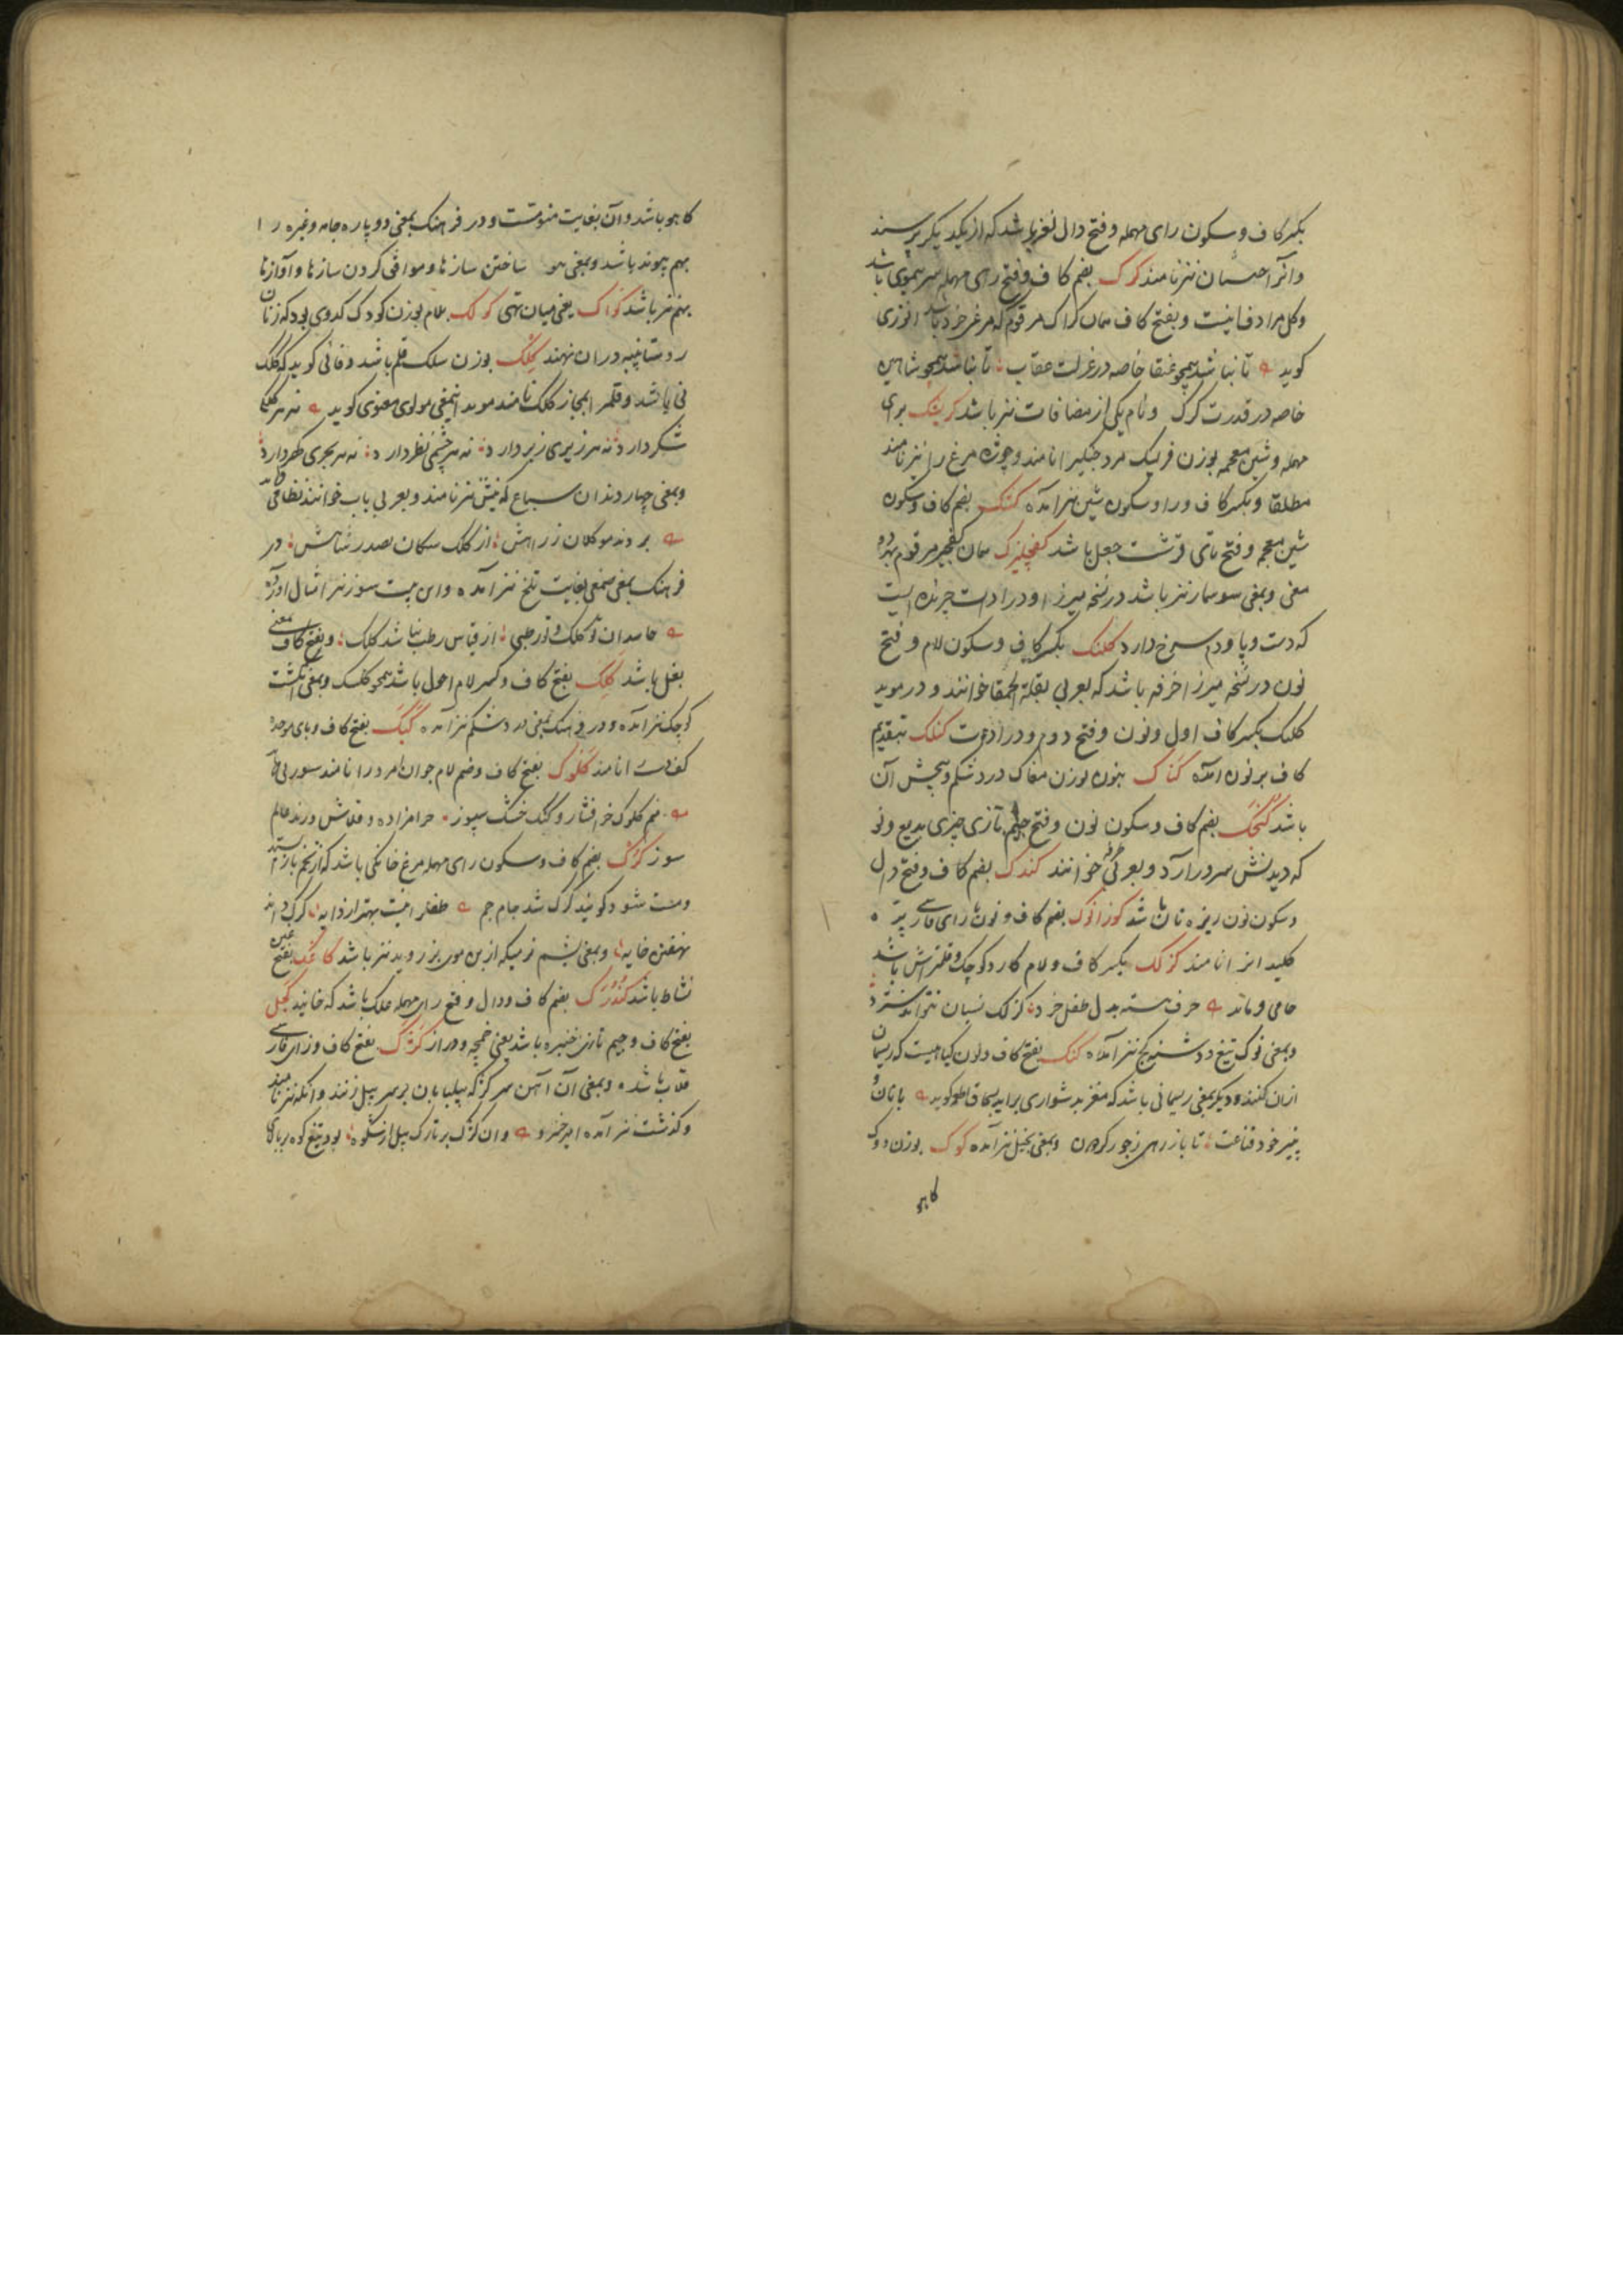 بکسر کاف و سکون رای مهمله و فتح دال لغز باشد که از یکدیکر پرسند
وانرا نیز نامند کرک بضم کاف و فتح رای مهمله سر بیموی باشد
وکل مرادف نیست و بفتح کاف همان کراک مرقوم که مرغ خرد باشد انوری
کوید تا نباشد همچو عنقا خاصه در عزلت عقاب تا نباشد همچو شاهین
خاصه در قدرت کرک ونام یکی از مضافات نیز باشد کریشک برای
مهمله و شین معجمه بوزن فرنیک مرد جنکی را نامند و چوزه مرغ را نیز نامند
مطلقا و بکسر کاف و را و سکون شین نیز آمده کشتک بضم کاف و سکون
شین معجمه و فتح تای قرشت جعل باشد کفچلیزک همان کفچلیز مرقوم بهر دو
معنی و بمعنی سوسمار نیز باشد در نسخه میرزا و در ادات چرنده ایست
که دست و پا و دم سرخ دارد کلنک بکسر کاف و سکون لام و فتح
نون در نسخه میرزا خرفه باشد که بعربی بقلة الحمقا خوانند و در موید
کلنک بکسر کاف اول و نون و فتح دوم و در ادات کنلک بتقدیم
کاف بر نون آمده کناک بنون بوزن مغاک درد شکم و پیچش آن
باشد کنجک بضم کاف و سکون نون و فتح جیم تازی چیزی بدیع و نو
که دیدنش سرور آرد و بعربی طرفه خوانند کندک بضم کاف و فتح دال
و سکون نون ریزه نان باشد کوزانوک بضم کاف و نون با زای فارسی پره
کلیدانرا نامند کزلک بکسر کاف و لام کارد کوچک و قلمتراش باشد
جامی فرماید حرف بسته بدل طفل خرد کزلک نسیان نتواند سترد
و بمعنی نوک تیغ و دشنه کج نیز آمده کنک بفتح کاف و نون کیاهیست که ریسمان
ازان کنند و دیکر بمعنی ریسمانی باشد که مغز بدشواری براید بسحاق اطعمه کوید با نان و
پنیر خود قناعت تا باز رهی ز جور کردن و بمعنی بخیل نیز آمده کوک بوزن دوک
کاهو
کاهو باشد و آن بغایت منومست و در فرهنک بمعنی دو پاره جامه و غیره را
بهم پیوند باشد و بمعنی هم ساختن سازها و موافق کردن سازها و آوازها
بهم نیز باشد کواک یعنی میان تهی کولک بلام بوزن کودک کدوی بود که زنان
روستا پنبه دران نهند کلک بوزن سلک قلم باشد وفائی کوید که کلک
نی باشد و قلمرا بمجاز کلک نامند موید اینمعنی مولوی معنوی کوید نه هر کلکی
شکر دارد نه هر زیری زبر دارد نه هر چشمی نظر دارد نه هر بحری کهر دارد
و بمعنی چهار دندان سباع که نیش نیز نامند و بعربی ناب خوانند نظامی
بردند موکلان ز راهش از کلک سکان بصدر شاهش در
فرهنک بمعنی صمغی بغایت تلخ نیز آمده و این بیت سوزنیرا مثال آورده
حاسدان تو کلک و تو رطبی از قیاس رطب نباشد کلک و بفتح کاف بمعنی
بغل باشد کلک بفتح کاف و کسر لام احول باشد همچو کلیک و بمعنی انکشت
کوچک نیز آمده و در فرهنک بمعنی درد شکم نیز آمده کبک بفتح کاف و بای موحده
کف دست را نامند کلوک بفتح کاف و ضم لام جوان امرد را نامند سوزنی
منم کلوک خر افشار و کنک خشک سپوز حرامزاده و قلاش و رند عالم
سوز کرک بضم کاف و سکون رای مهمله مرغ خانکی باشد که از تخم باز ایستد
و مست شود کویند کرک شد جام جم طفل را نیست بهتر از دایه کرک داند
نهفتن خایه و بمعنی پشم نرمیکه از بن موی بز روید نیز باشد کاغک بفتح غین
نشاط باشد کدرک بضم کاف و دال و فتح رای مهمله علک باشد که خایند کجلک
بفتح کاف و جیم تازی خنبره باشد یعنی خمچه و دراز کژک بفتح کاف و زای فارسی
قلاب باشد و بمعنی آن آهن سر کژ که پیلبانان بر سر پیل زنند و انکه نیز نامند
و کذشت نیز آمده امیر خسرو وان کژک بر تارک پیل از شکوه بود تیغ کوه